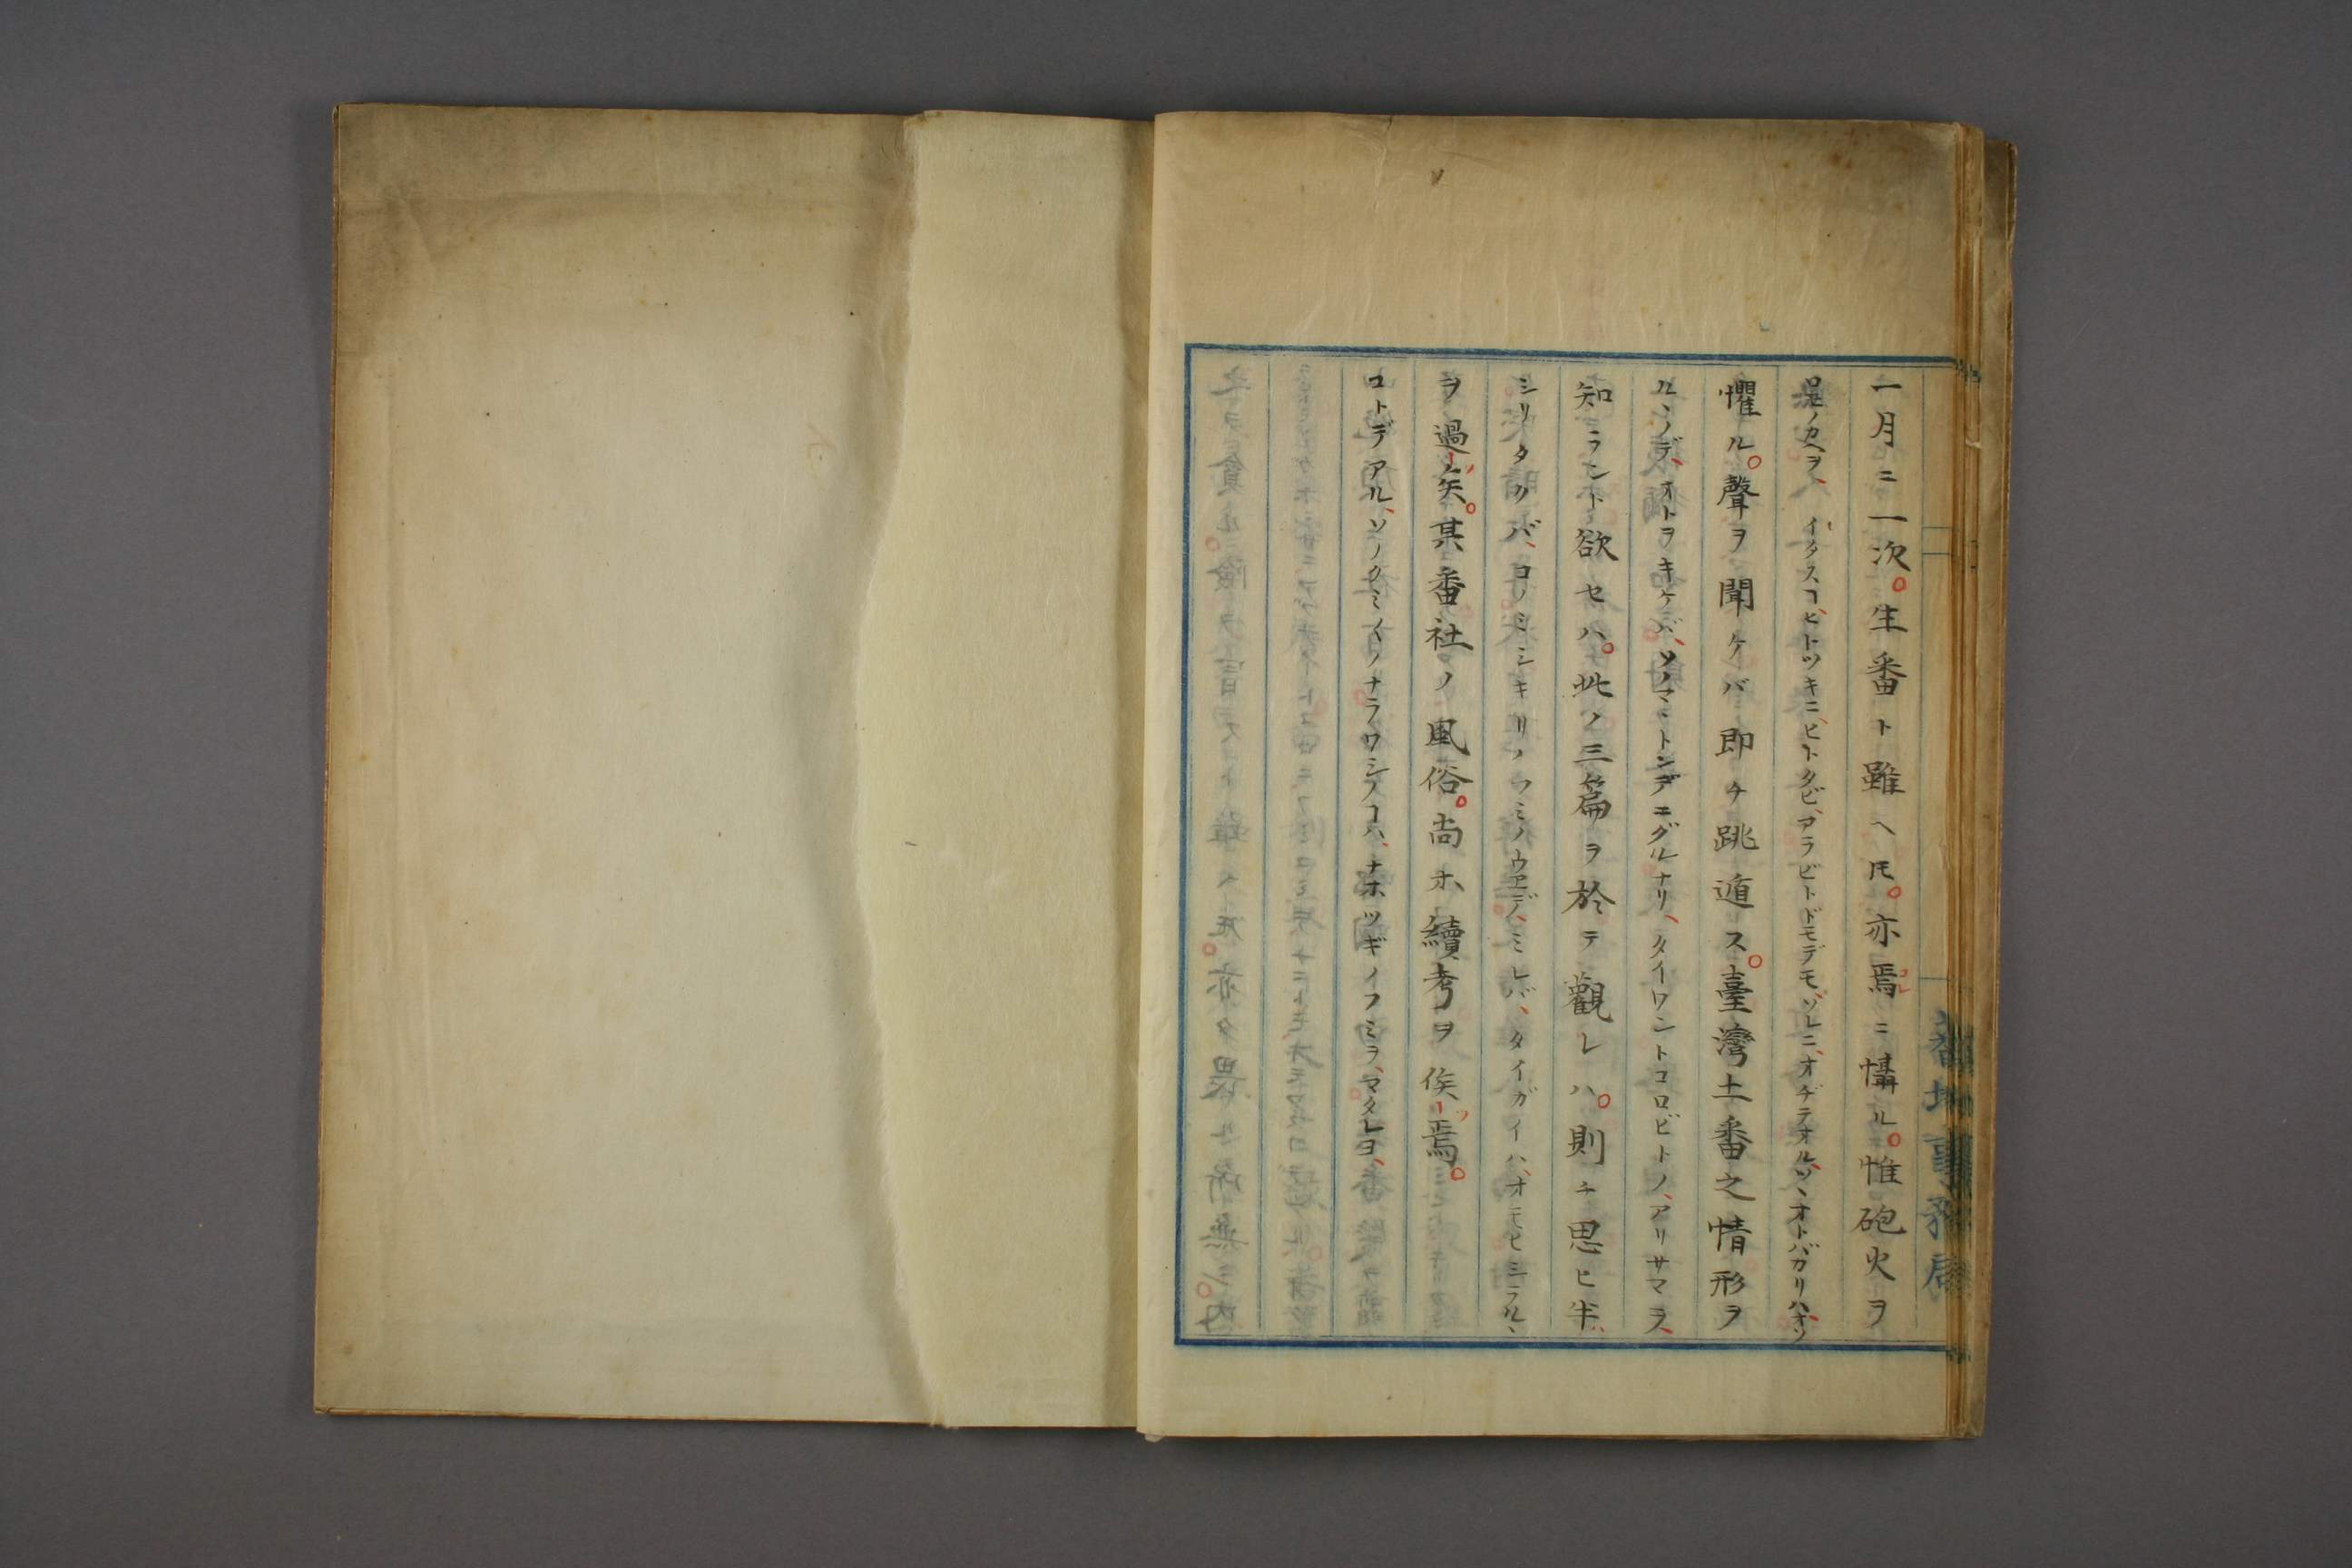 一月ニ一次。生番ト雖ヘ𪜈。亦焉ニ懾ル。惟砲火ヲ
イタスコ、ヒトツキニ、ヒトタビ、アラビトドモデモ、ソレニ、オヂテオル、ツヽオトバカリハ、オソ
懼ル。聲ヲ聞ケバ即チ跳遁ス。臺灣土番之情形ヲ
ルヽノデ、オトヲキケバ、ソノマヽトンデニグルナリ、タイワントコロビトノ、アリサマヲ、
知ラント欲セハ。此ノ三篇ヲ於テ觀レハ。則チ思ヒ半
シリタクバ、コノミシキリノフミノウヱデ、ミレバ、タイガイハ、オモヒミラルヽ
ヲ過ノ矣。某番社ノ風俗。尚ホ續考ヲ俟ツ焉。
コトデアル、ソノクミ〳〵ノナラワシノコハ、ナホツギノフミヲ、マタレヨ、
蕃地事務局